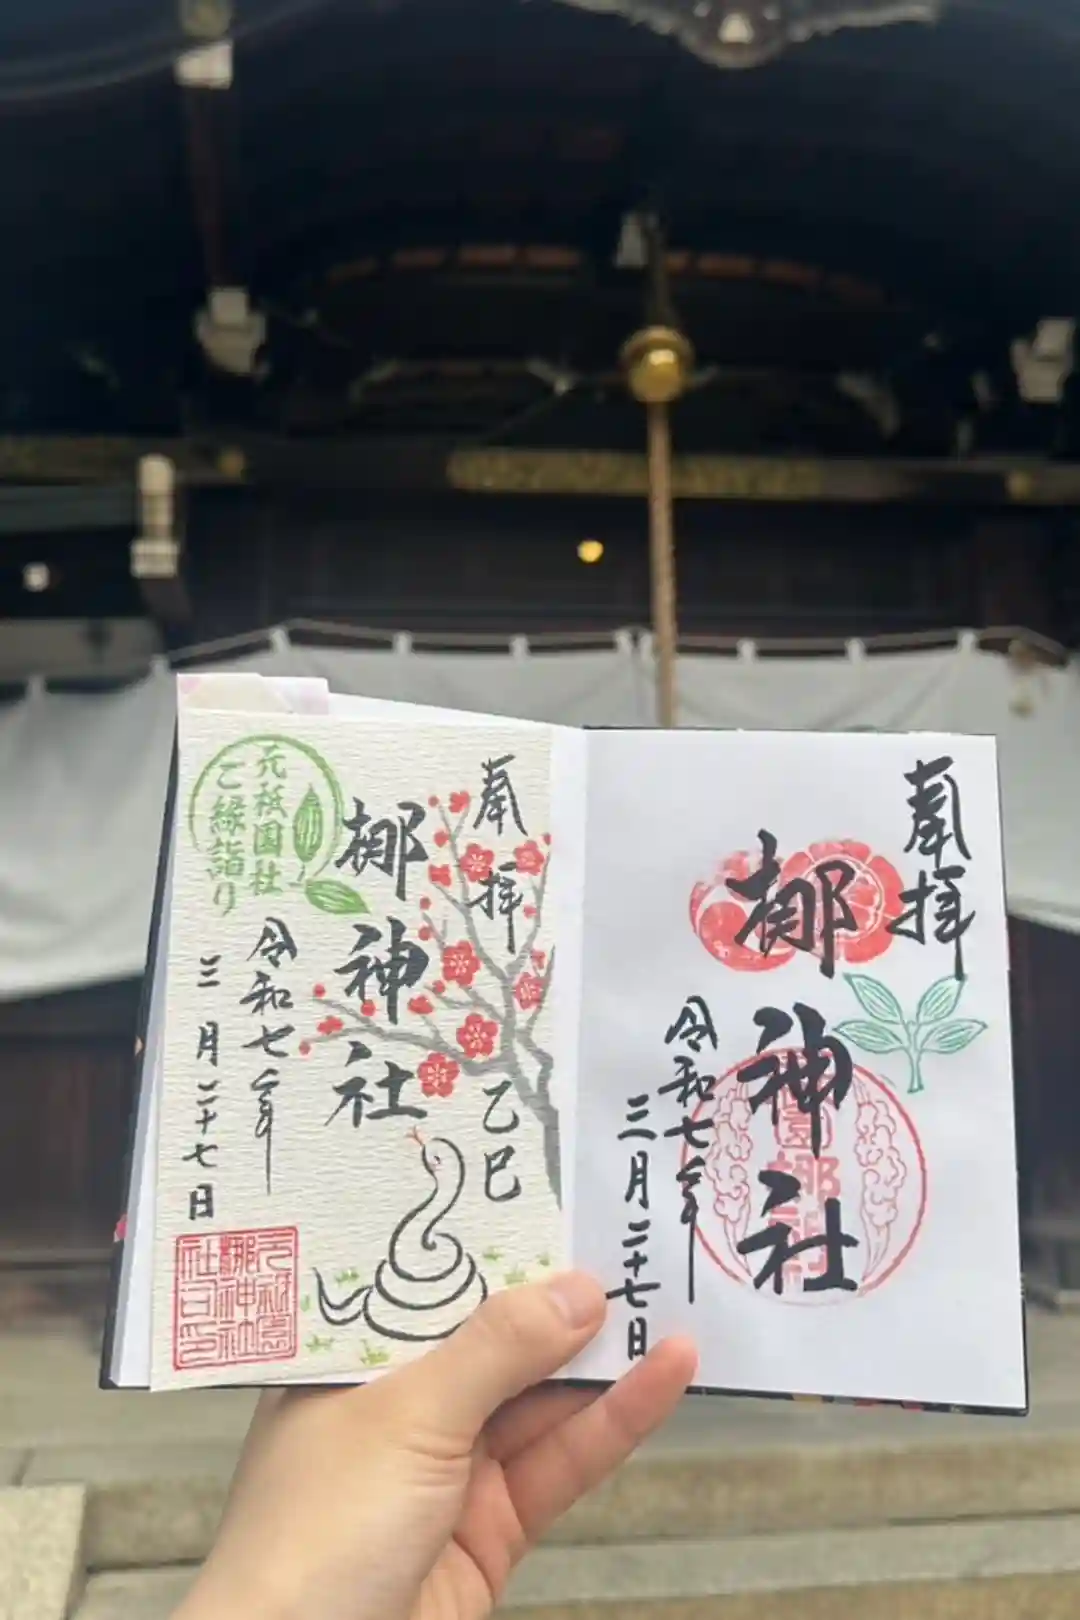 奉拝
梛神社
令和七年
三月二十七日
奉拝
乙巳
梛神社
令和七年
三月二十七日
元祇園社
ご縁詣り
元祇園
梛神社
社司印